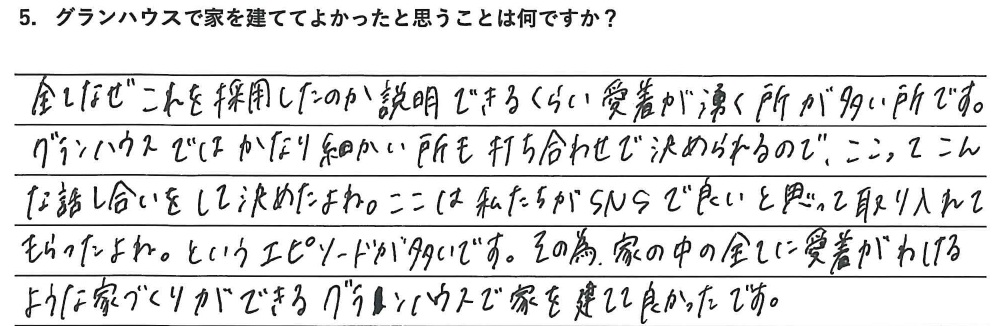 5. グランハウスで家を建ててよかったと思うことは何ですか？
全てなぜこれを採用したのか説明できるくらい愛着が湧く所が多い所です。
グランハウスではかなり細かい所も打ち合わせで決められるので、ここってこん
な話し合いをして決めたよね。ここは私たちがSNSで良いと思って取り入れて
もらったよね。というエピソードが多いです。その為、家の中の全てに愛着がわける
ような家づくりができるグランハウスで家を建てて良かったです。